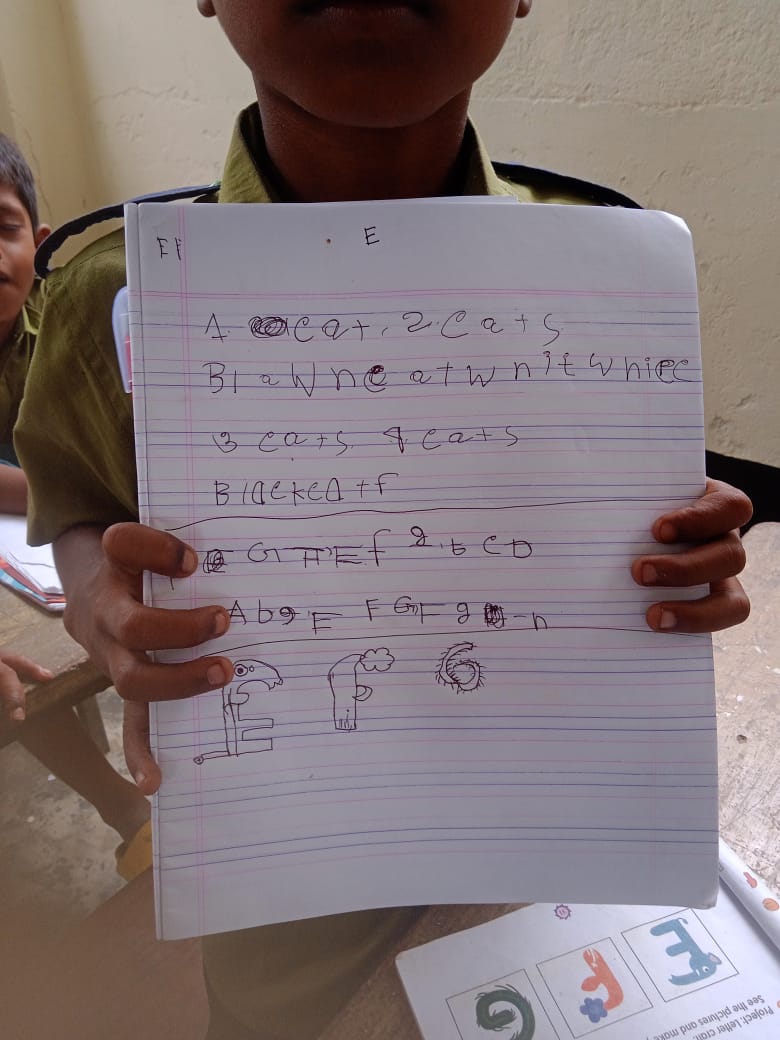 E F E
1. cat. 2. cats
Blawne at wnit wniec
3 cats. 4 cats
Blackcatf
G H E f g. b c D
Abg E F G F g - h
E F G
Project: Letter craft
See the pictures and make
E F G